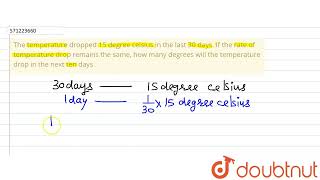 571223660
The temperature dropped 15 degree celsius in the last 30 days. If the rate of
temperature drop remains the same, how many degrees will the temperature
drop in the next ten days.
30days —— 15 degree celsius
1day —— 1/30 × 15 degree celsius
1
doubtnut